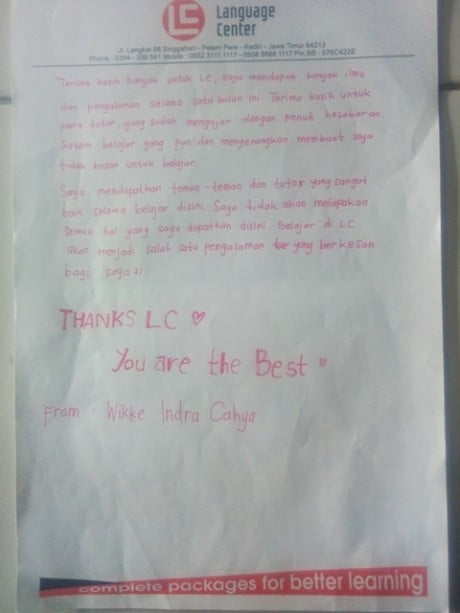 LC
Language
Center
Jl. Langkat 88 Singgahan - Pelem Pare - Kediri - Jawa Timur 64213
Phone : 0354 - 398 561 Mobile : 0852 3111 1117 - 0856 8686 1117 Pin BB : 576C422E
Terima kasih banyak untuk LC, saya mendapat banyak ilmu
dan pengalaman selama satu bulan ini. Terima kasih untuk
para tutor, yang sudah mengajar dengan penuh kesabaran.
Sistem belajar yang fun dan menyenangkan membuat saya
tidak bosan untuk belajar.
Saya mendapatkan teman-teman dan tutor yang sangat
baik selama belajar disini. Saya tidak akan melupakan
semua hal yang saya dapatkan disini. Belajar di LC
akan menjadi salah satu pengalaman yang berkesan
bagi saya :)
THANKS LC ♡
You are the Best ♡
From : Wikke Indra Cahya
complete packages for better learning